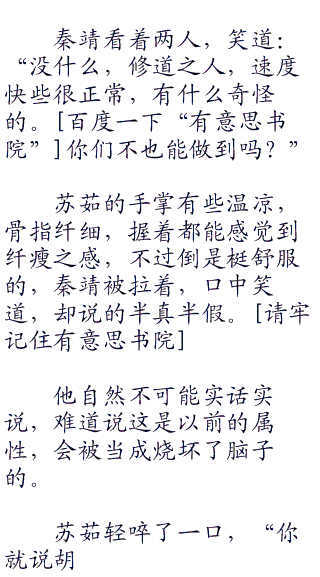 秦靖看着两人，笑道：
“没什么，修道之人，速度
快些很正常，有什么奇怪
的。[百度一下“有意思书
院”]你们不也能做到吗？”
苏茹的手掌有些温凉，
骨指纤细，握着都能感觉到
纤瘦之感，不过倒是挺舒服
的，秦靖被拉着，口中笑
道，却说的半真半假。[请牢
记住有意思书院]
他自然不可能实话实
说，难道说这是以前的属
性，会被当成烧坏了脑子
的。
苏茹轻啐了一口，“你
就说胡